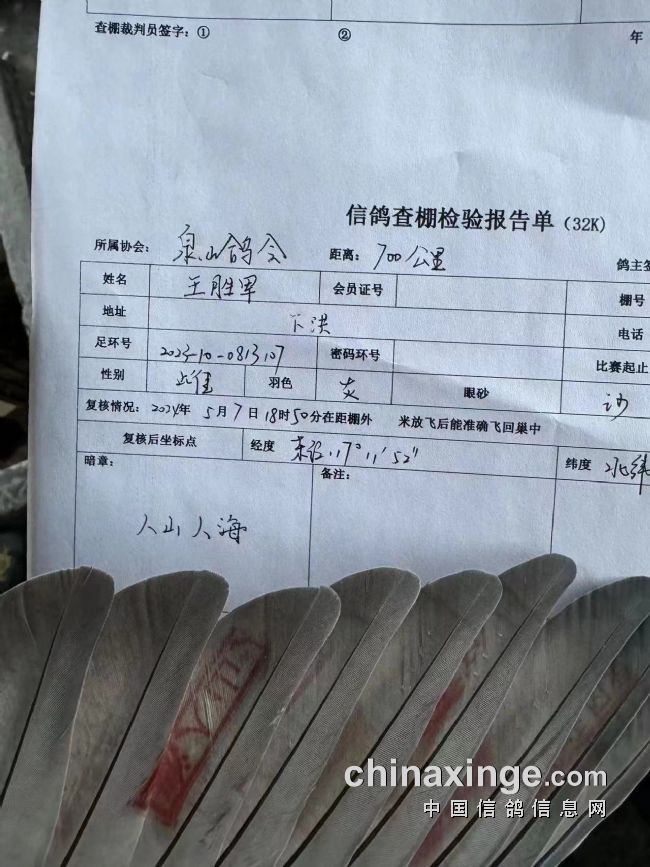 查棚裁判员签字：① ② 年
信鸽查棚检验报告单（32K）
所属协会： 泉山鸽会 距离： 700公里 鸽主签
姓名 王胜军 会员证号 棚号
地址 下洪 电话
足环号 2023-10-0813107 密码环号 比赛起止
性别 雄 羽色 灰 眼砂 沙
复核情况：2024年 5月7日18时50分在距棚外 米放飞后能准确飞回巢中
复核后坐标点 经度 东经117°11′52″ 纬度 北纬
暗章： 备注：
人山人海
chinaxinge.com
中国信鸽信息网